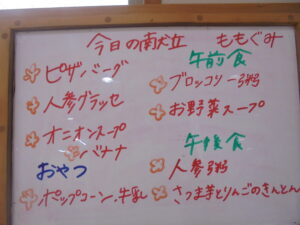 今日の献立 ももぐみ
ピザバーグ
人参グラッセ
オニオンスープ
バナナ
おやつ
ポップコーン、牛乳
午前食
ブロッコリー粥
お野菜スープ
午後食
人参粥
さつま芋とりんごのきんとん